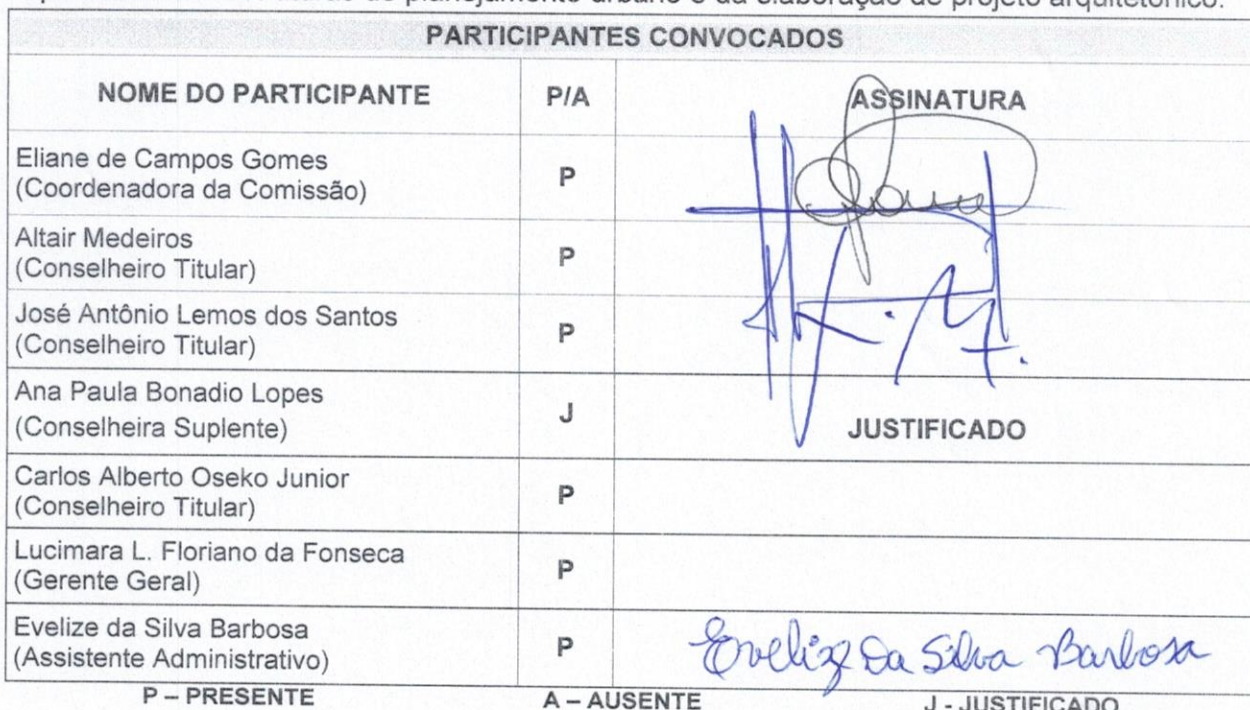 planejamento urbano e da elaboração de projeto arquitetônico.
PARTICIPANTES CONVOCADOS
NOME DO PARTICIPANTE P/A ASSINATURA
Eliane de Campos Gomes
(Coordenadora da Comissão) P
Altair Medeiros
(Conselheiro Titular) P
José Antônio Lemos dos Santos
(Conselheiro Titular) P
Ana Paula Bonadio Lopes
(Conselheira Suplente) J JUSTIFICADO
Carlos Alberto Oseko Junior
(Conselheiro Titular) P
Lucimara L. Floriano da Fonseca
(Gerente Geral) P
Evelize da Silva Barbosa
(Assistente Administrativo) P Evelize Da Silva Barbosa
P – PRESENTE A – AUSENTE J - JUSTIFICADO